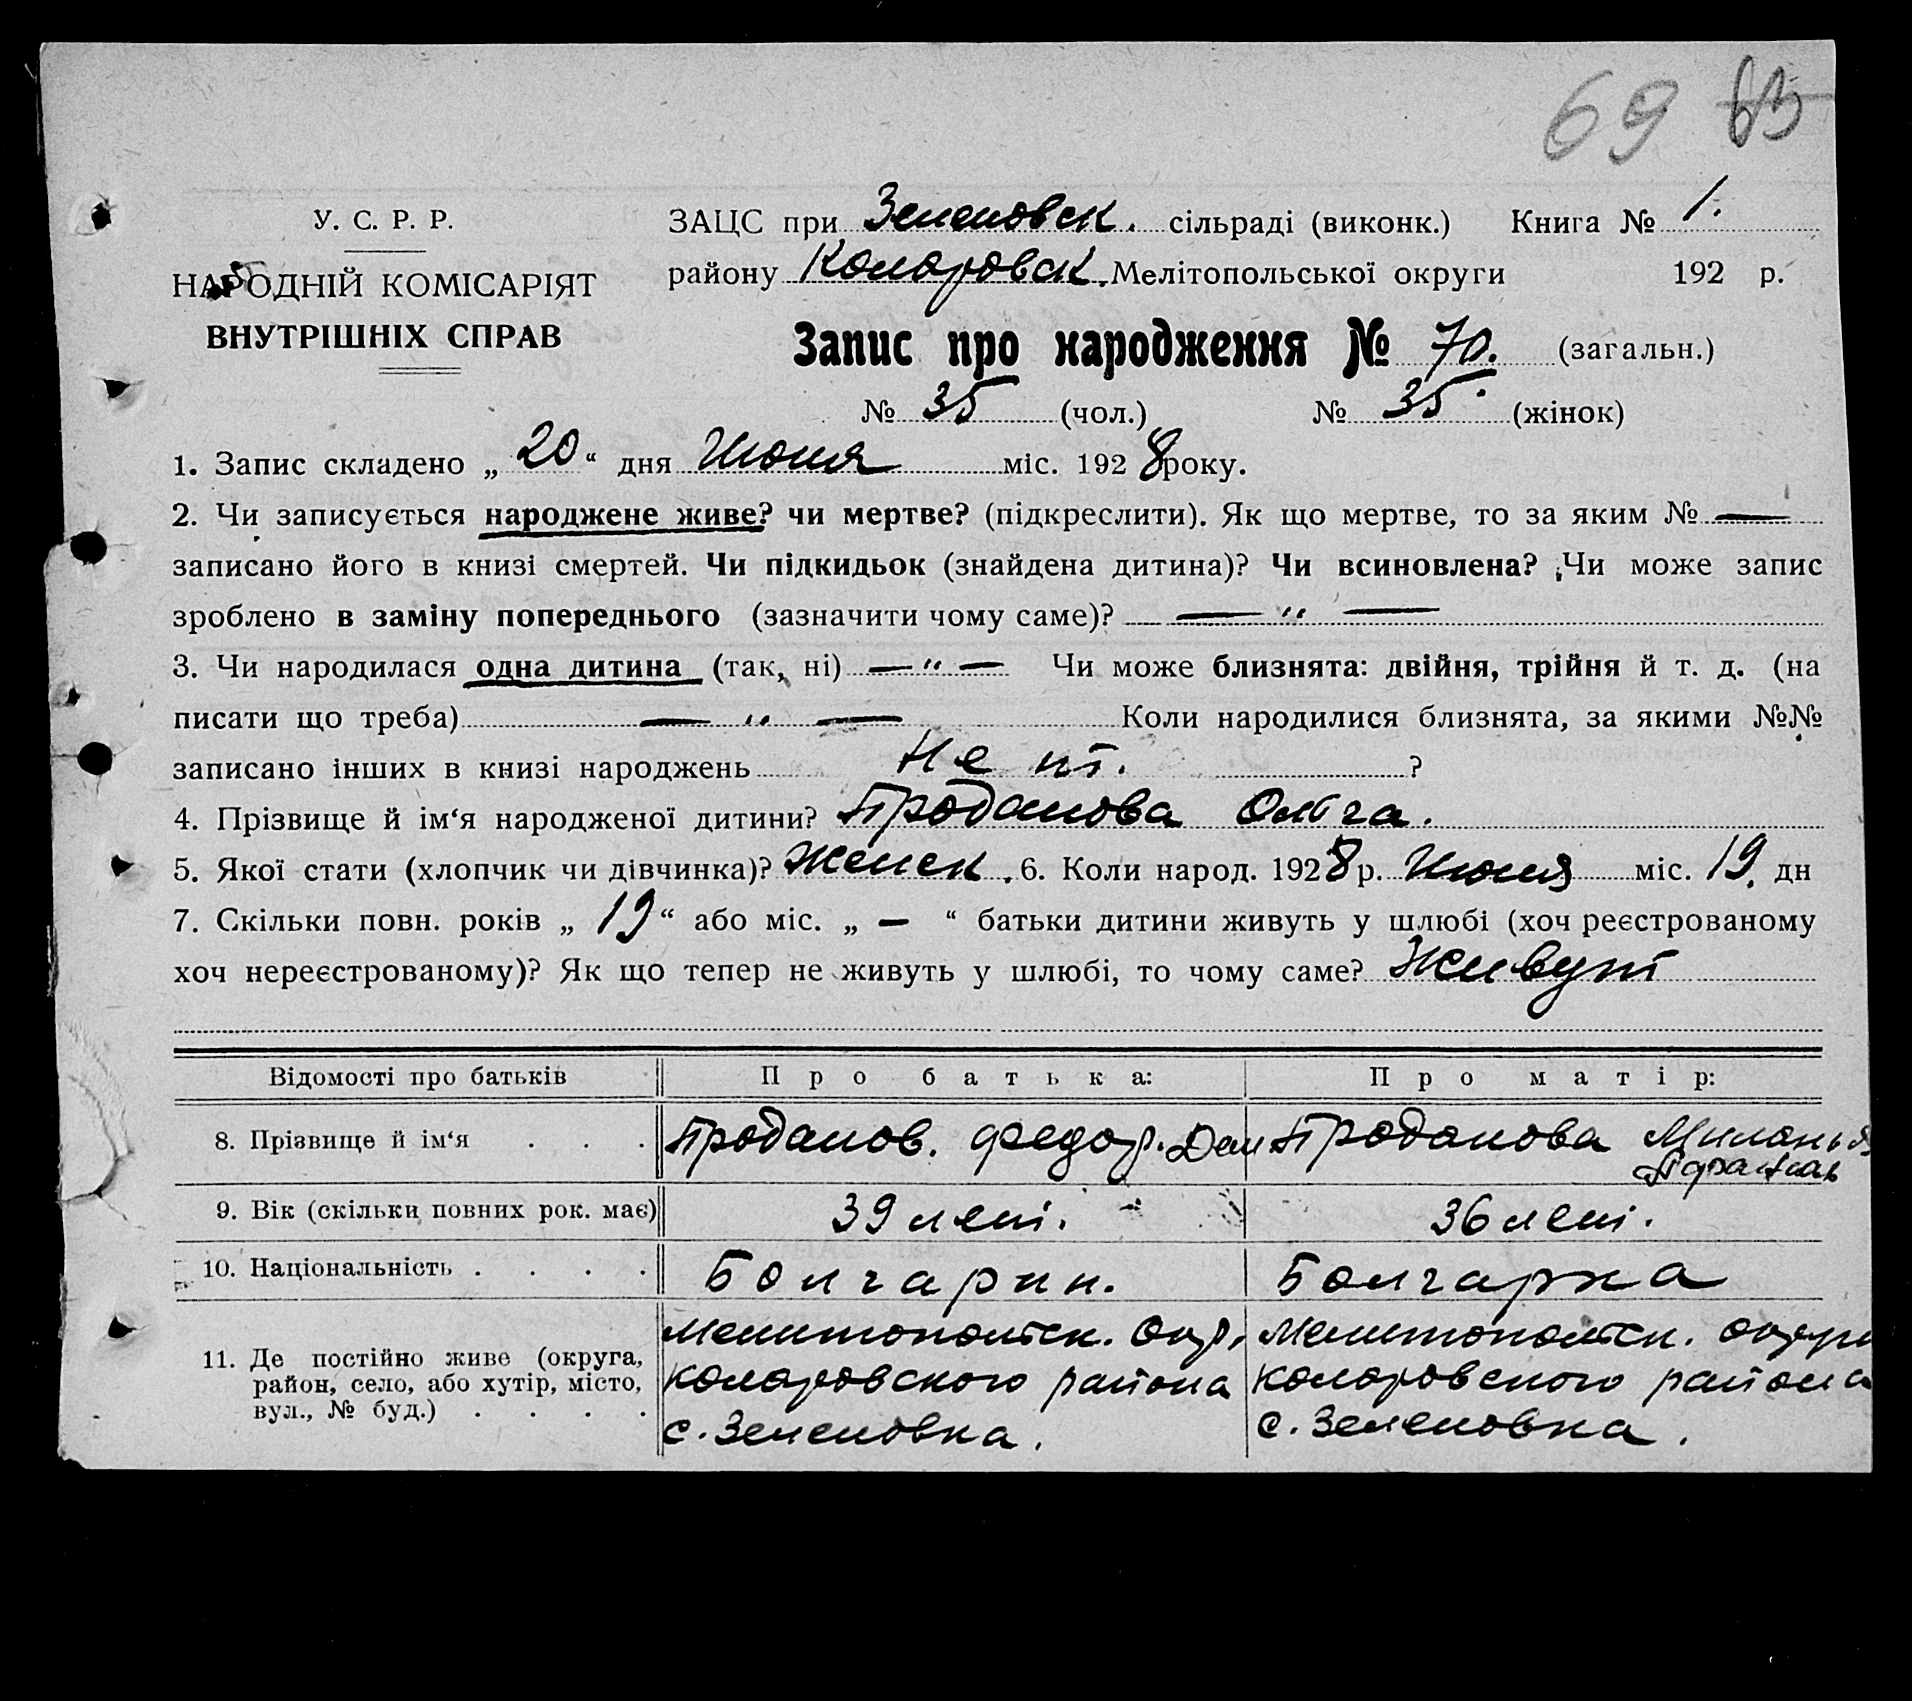 69 63
У. С. Р. Р.
НАРОДНІЙ КОМІСАРІЯТ
ВНУТРІШНІХ СПРАВ
ЗАЦС при Зеленовск. сільраді (виконк.) Книга № 1.
району Коларовск. Мелітопольської округи 192 р.
Запис про народження № 70. (загальн.)
№ 35 (чол.) № 35 (жінок)
1. Запис складено „ 20 “ дня Июня міс. 1928 року.
2. Чи записується народжене живе? чи мертве? (підкреслити). Як що мертве, то за яким № —
записано його в книзі смертей. Чи підкидьок (знайдена дитина)? Чи всиновлена? Чи може запис
зроблено в заміну попереднього (зазначити чому саме)? — „ —
3. Чи народилася одна дитина (так, ні) — „ — Чи може близнята: двійня, трійня й т. д. (на
писати що треба) — „ — Коли народилися близнята, за якими №№
записано інших в книзі народжень Не ?
4. Прізвище й ім‘я народженої дитини? Проданова Ольга.
5. Якої стати (хлопчик чи дівчинка)? Женск. 6. Коли народ. 1928 р. Июня міс. 19. дн
7. Скільки повн. років „ 19 “ або міс. „ — “ батьки дитини живуть у шлюбі (хоч реєстрованому
хоч нереєстрованому)? Як що тепер не живуть у шлюбі, то чому саме? Живут
Відомості про батьків Про батька: Про матір:
8. Прізвище й ім‘я . . . Проданов. Федор. Проданова Миланья
9. Вік (скільки повних рок. має) 39 лет. 36 лет.
10. Національність . . . . Болгарин. Болгарка
11. Де постійно живе (округа, район, село, або хутір, місто, вул., № буд.) . . . .
Мелитопольск. Окр.
Коларовского района
с. Зеленовка.
Мелитопольск. округи
Коларовского района
с. Зеленовка.